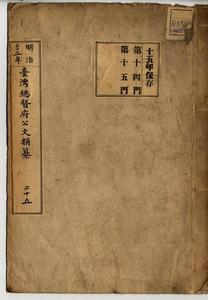 十五年保存
第十四門
第十五門
明治
三五年
臺灣總督府公文類纂
二十五